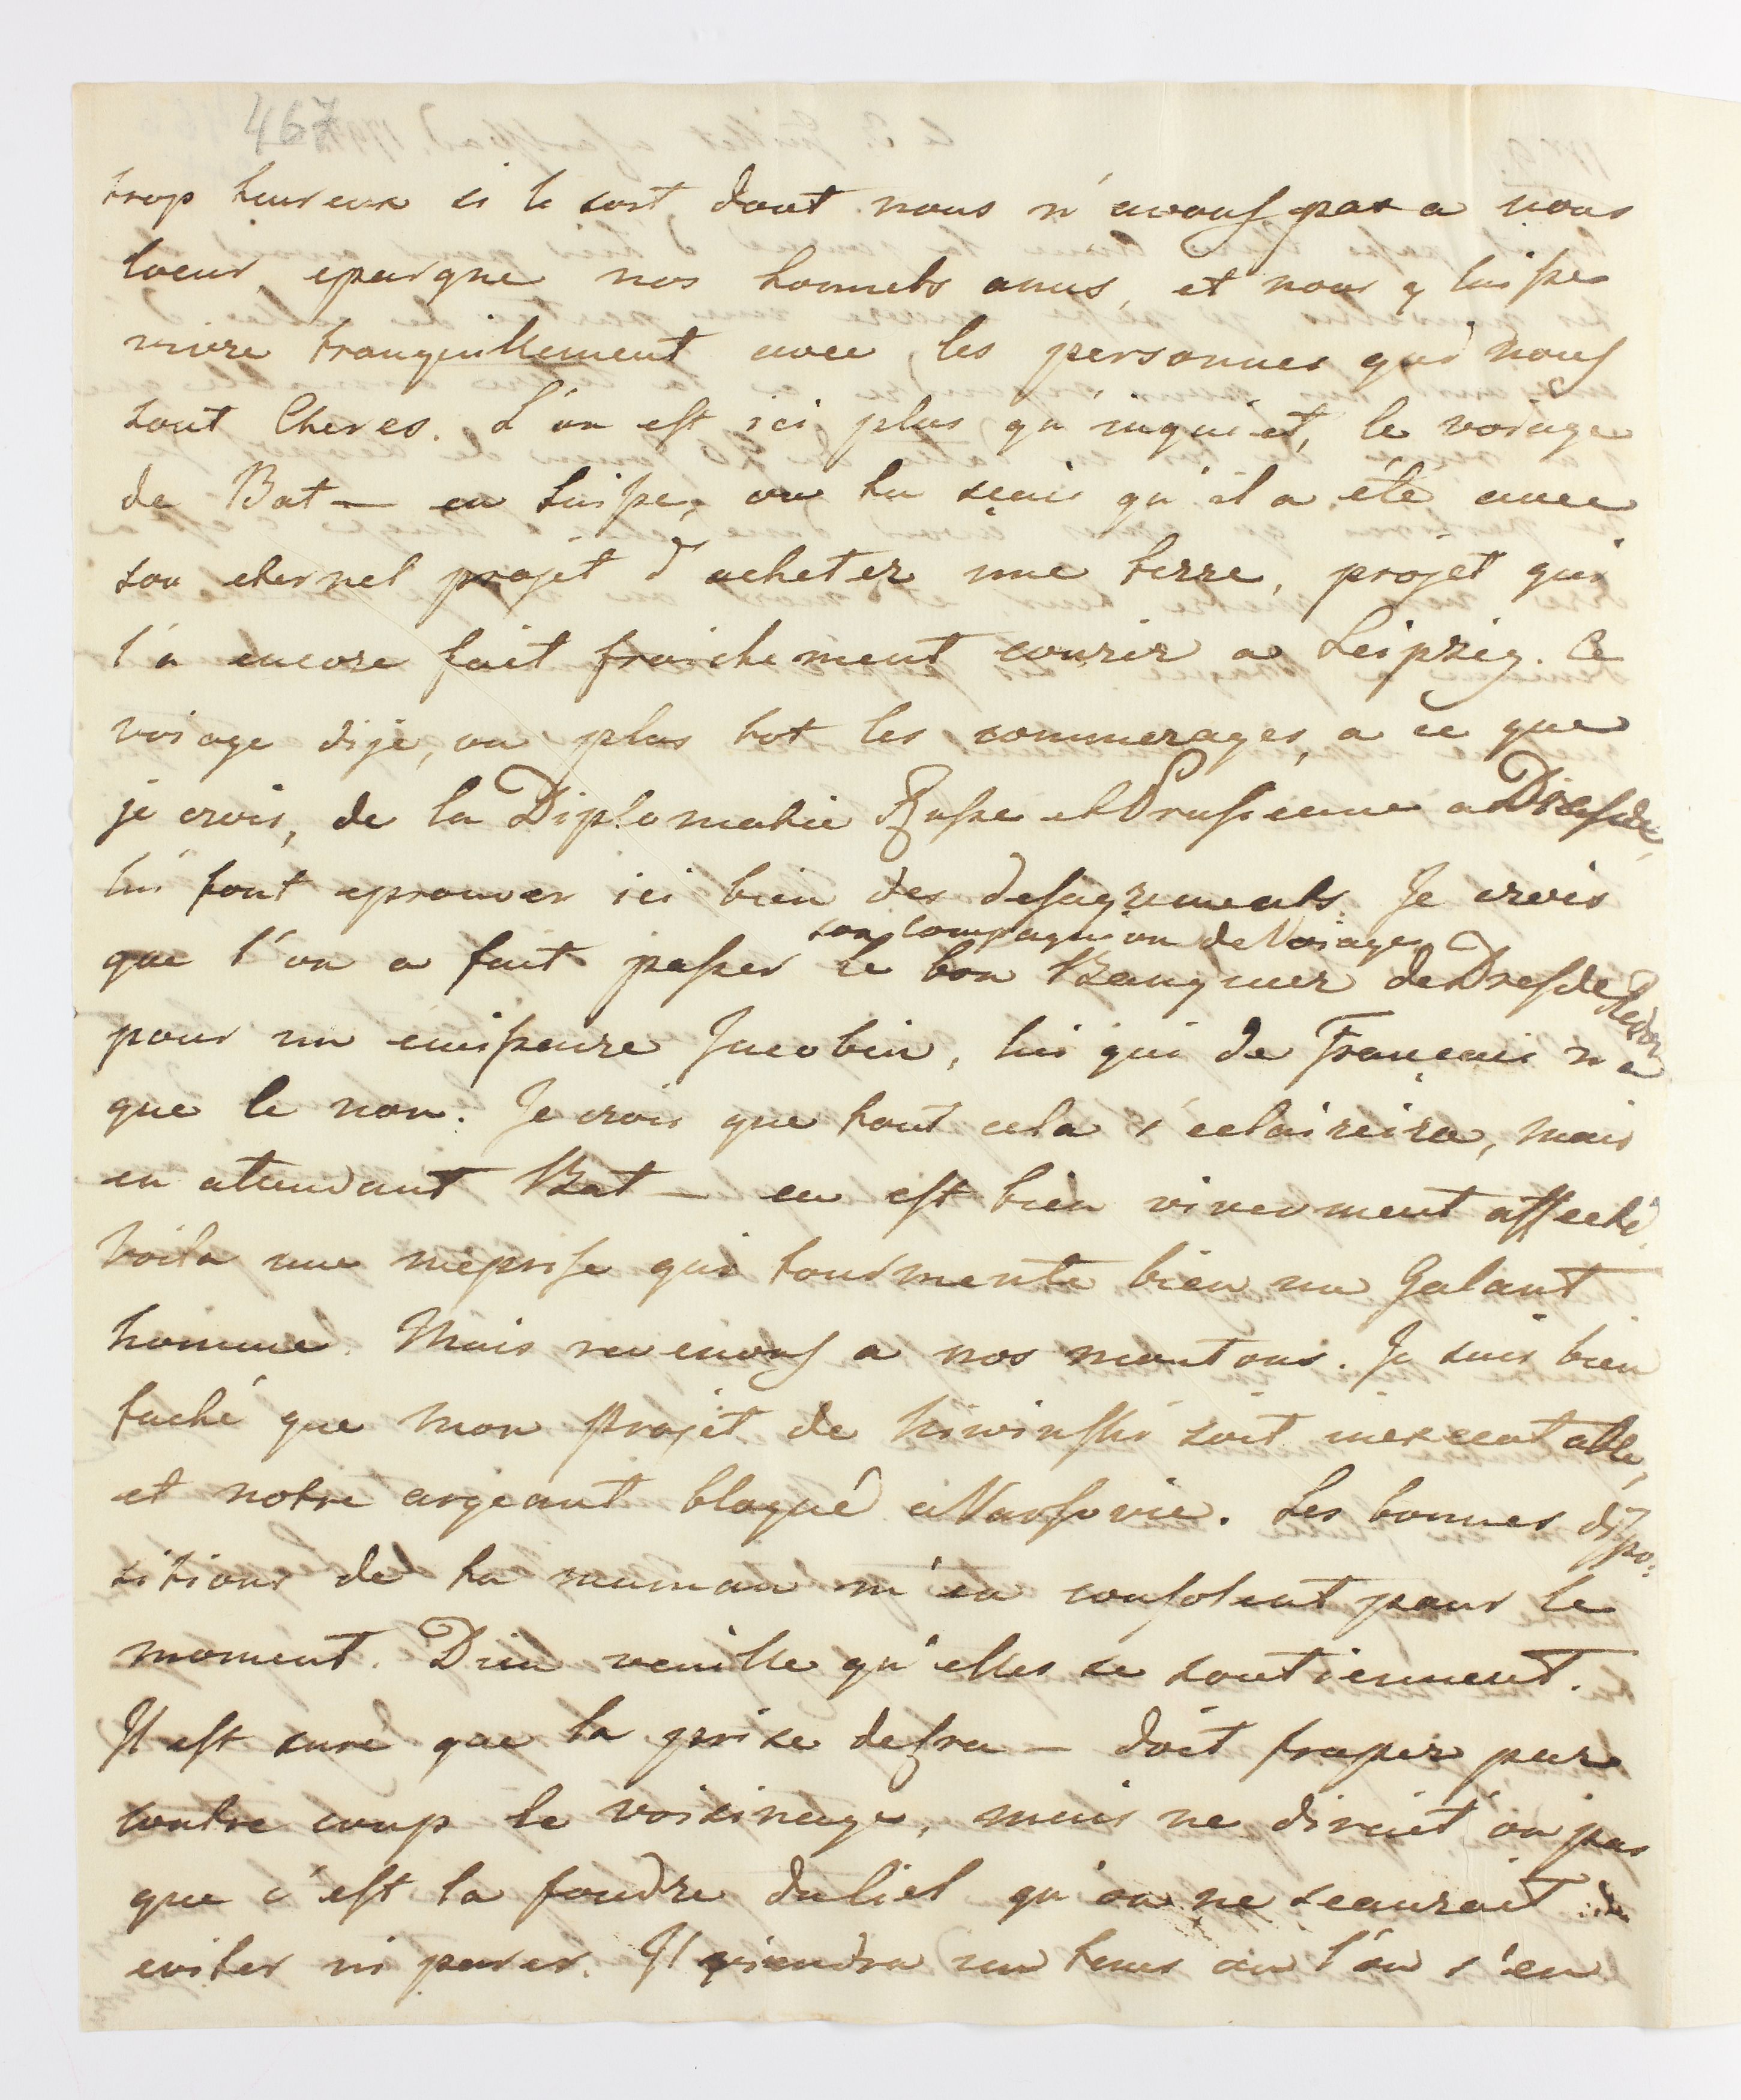 467
trop heureux si le sort dont nous n'avons pas a nous
loeur, epargne nos honnets amis, et nous y laisse
vivre tranquillement avec les personnes qui nous
sont Cheres. L'on est ici plus qu'inquiet, le voiage
de Bat — en Suisse, ou tu sçais qu'il a été avec
son eternel projet d'acheter une terre, projet qui
l'a encore fait fraichement courir a Leipzig. Ce
voiage disje, ou plus tot les commerages, a ce que
je crois, de la Diplomatie Russe et Prussienne a Dresde,
lui font eprouver ici bien des desagrements. Je crois
son Compagnion de Voiage
que l'on a fait passer le bon Banquier de Dresde
pour un emissaire Jacobin, lui qui de Français n'a
que le nom. Je crois que tout cela s'eclaircira, mais
en attendant Bat — en est bien vivement affecté.
Voila une méprise qui tourmente bien un Galant
homme. Mais revenons a nos moutons. Je suis bien
faché que mon projet de soit inexecutable,
et notre argeant bloqué a Varsovie. Les bonnes dispo:
sitions de ta maman m'en consolent pour le
moment. Dieu veuille qu'elles se soutiennent.
Il est sure que la prise de — doit fraper par
contre coup le voisinage, mais ne dirait on pas
que c'est la foudre du Ciel qu'on ne scaurait
eviter ni parer. Il viendra un tems ou l'on s'en